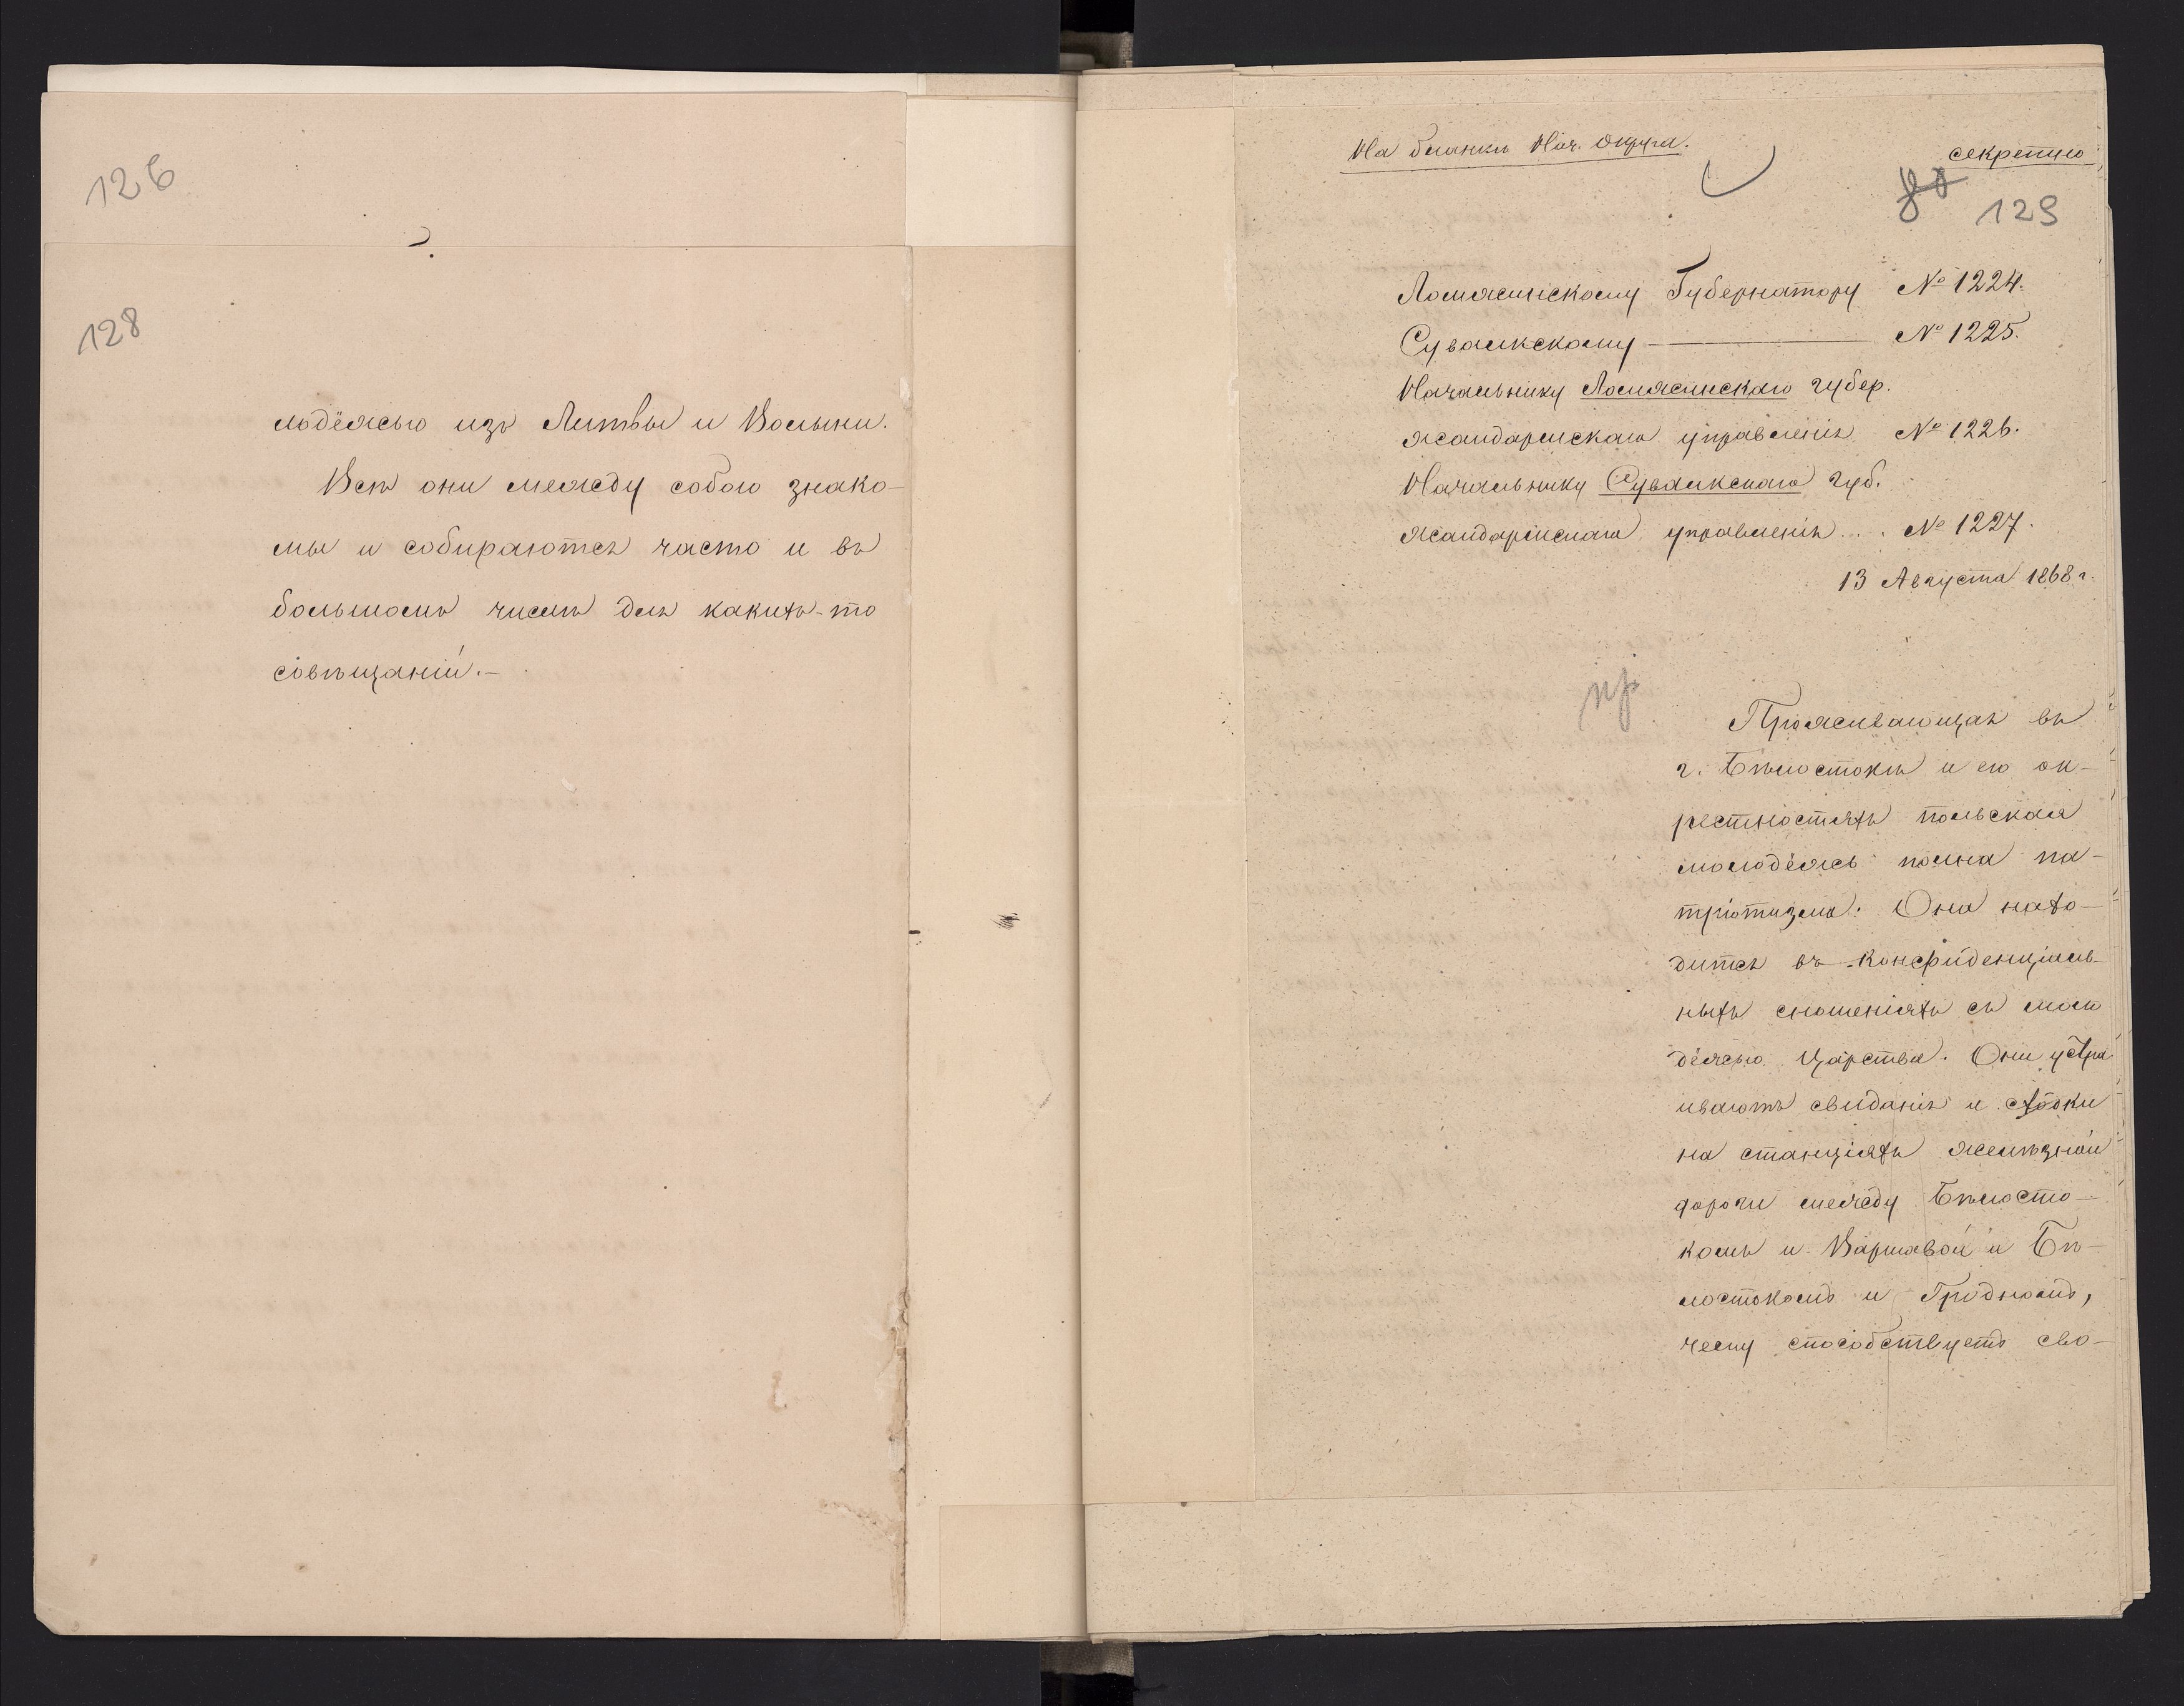 126
128
лодёжью изъ Литвы и Волыни.
Всѣ они между собою знако-
мы и собираются часто и въ
большомъ числѣ для какихъ-то
совѣщаній.-
На бланкѣ Нач. Округа.
секретно
80
129
Ломжинскому Губернатору № 1224.
Сувалкскому — № 1225.
Начальнику Ломжинскаго губер.
жандармскаго управленія № 1226.
Начальнику Сувалкскаго губ.
жандармскаго управленія... № 1227.
13 Августа 1868 г.
Проживающая въ
г. Бѣлостокѣ и его ок-
рестностяхъ польская
молодёжь полна па-
тріотизма. Она нахо-
дится въ конфиденціаль-
ныхъ сношеніяхъ съ моло
дёжью Царства. Они устра
иваютъ свиданія и сходки
на станціяхъ желѣзной
дороги между Бѣлосто-
комъ и Варшавой и Бѣ-
лостокомъ и Гродномъ,
чему способствуетъ сво-